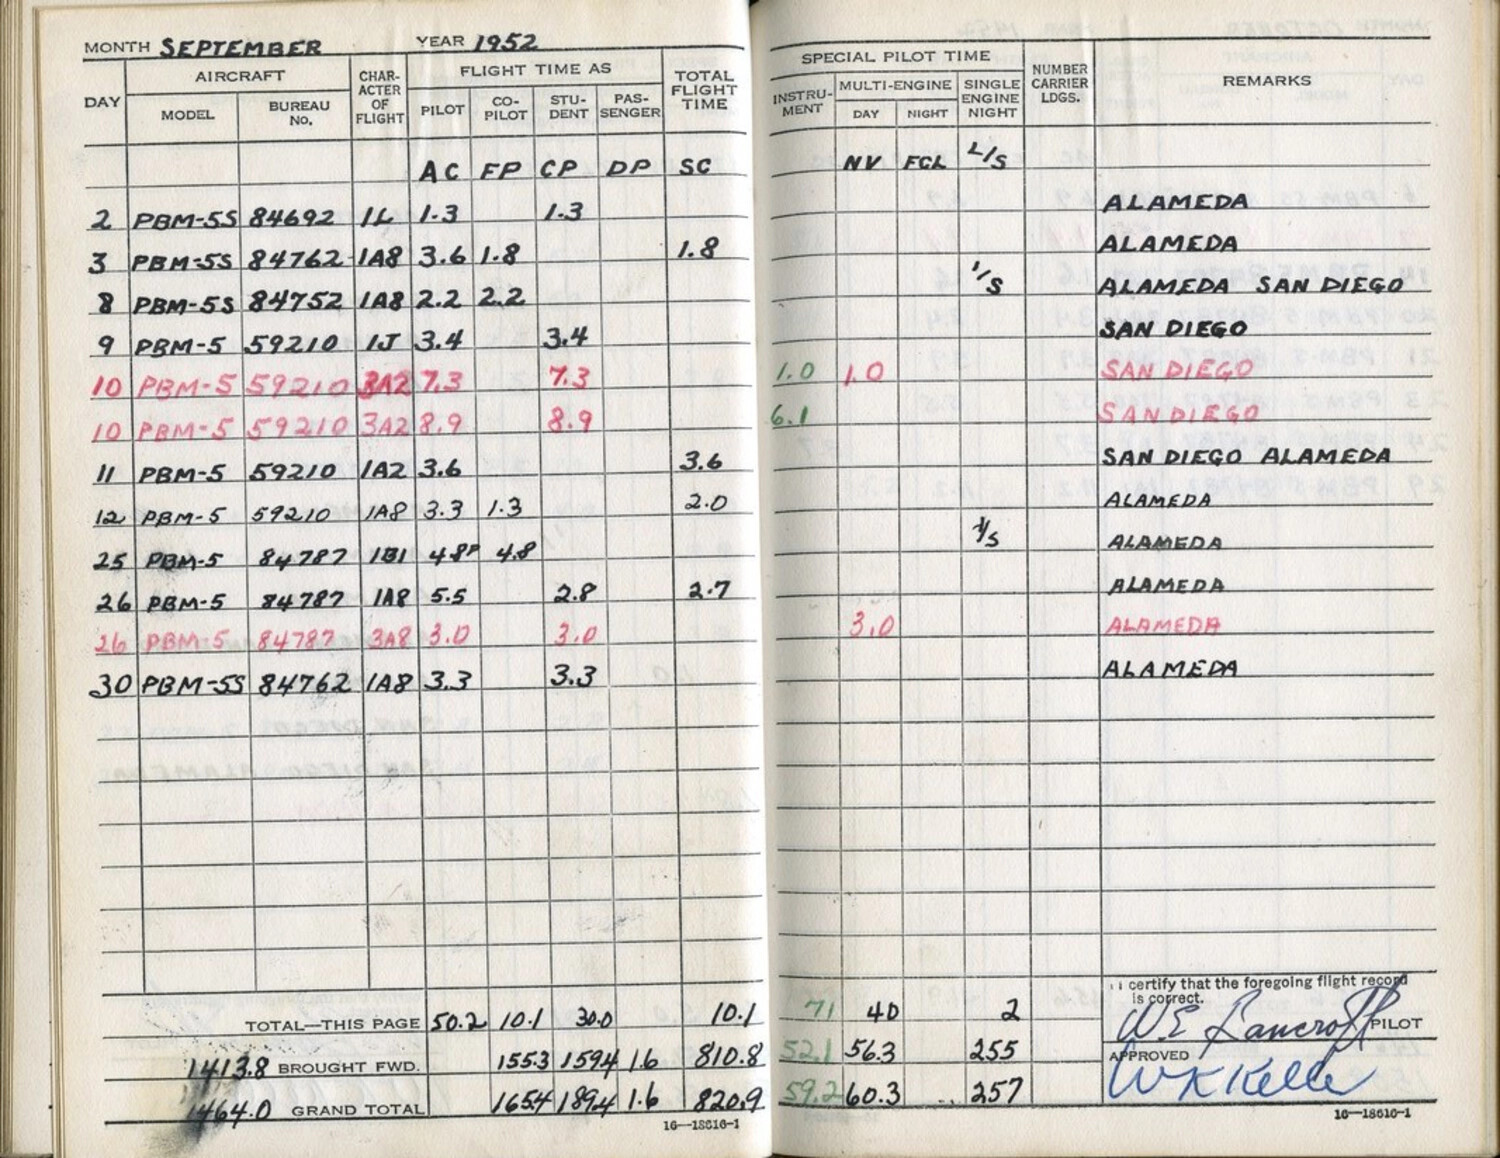 MONTH SEPTEMBER YEAR 1952
DAY AIRCRAFT CHAR-ACTER OF FLIGHT FLIGHT TIME AS TOTAL FLIGHT TIME
MODEL BUREAU No. PILOT CO-PILOT STU-DENT PAS-SENGER
AC FP CP DP SC
2 PBM-5S 84692 1L 1.3 1.3
3 PBM-5S 84762 1A8 3.6 1.8 1.8
8 PBM-5S 84752 1A8 2.2 2.2
9 PBM-5 59210 1J 3.4 3.4
10 PBM-5 59210 3A2 7.3 7.3
10 PBM-5 59210 3A2 8.9 8.9
11 PBM-5 59210 1A2 3.6 3.6
12 PBM-5 59210 1A8 3.3 1.3 2.0
25 PBM-5 84787 1B1 4.8 4.8
26 PBM-5 84787 1A8 5.5 2.8 2.7
26 PBM-5 84787 3A8 3.0 3.0
30 PBM-5S 84762 1A8 3.3 3.3
TOTAL—THIS PAGE 50.2 10.1 30.0 10.1
1413.8 BROUGHT FWD. 1553 1594 1.6 810.8
1464.0 GRAND TOTAL 1654 1894 1.6 820.9
16—18616-1
SPECIAL PILOT TIME NUMBER CARRIER LDGS. REMARKS
INSTRU-MENT MULTI-ENGINE SINGLE ENGINE NIGHT
DAY NIGHT
NV FCL L/S
ALAMEDA
ALAMEDA
1/S ALAMEDA SAN DIEGO
SAN DIEGO
1.0 1.0 SAN DIEGO
6.1 SAN DIEGO
SAN DIEGO ALAMEDA
ALAMEDA
1/S ALAMEDA
ALAMEDA
3.0 ALAMEDA
ALAMEDA
I certify that the foregoing flight record
is correct.
71 40 2 W.E. Bancroft PILOT
52.1 56.3 255 APPROVED
59.2 60.3 257 W K Kelle
16—18616-1